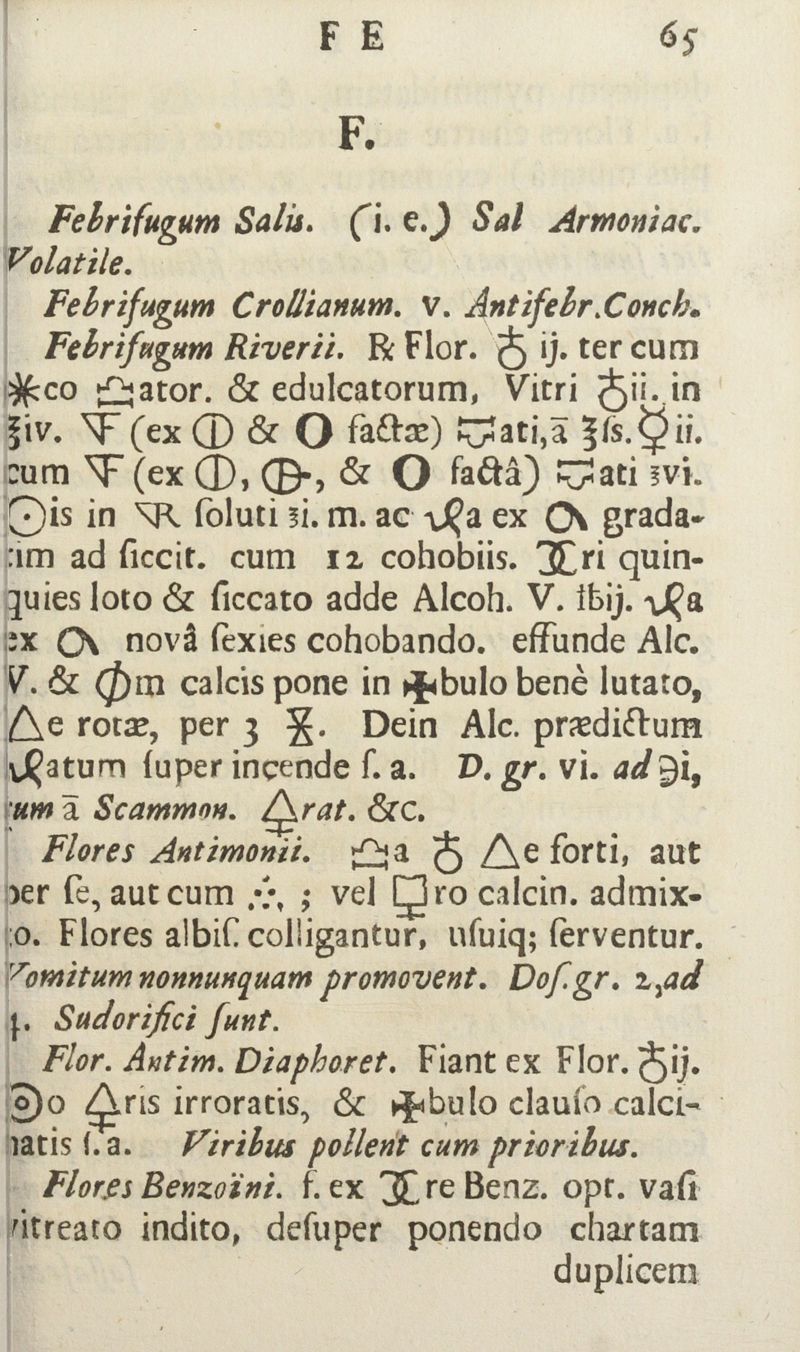 F E 65
F.
Febrifugum Salis. (i. e.) Sal Armoniac.
Volatile.
Febrifugum Crollianum. v. Antifebr.Conch.
Febrifugum Riverii. ℞ Flor. ♁ ij. ter cum
co ator. & edulcatorum, Vitri ii. in
℥iv. (ex & factæ) ati,ā ℥ſs. ☿ ii.
cum (ex & factâ) ati ʒvi.
is in ſoluti ʒi. m. ac a ex grada-
im ad ſiccit. cum 12 cohobiis. ri quin-
quies loto & ſiccato adde Alcoh. V. ℔ij. a
ex novâ ſexies cohobando. effunde Alc.
V. & m calcis pone in bulo benè lutato,
△e rotæ, per 3 . Dein Alc. prædictum
atum ſuper incende ſ. a. D. gr. vi. ad ℈i,
um ā Scammon. rat. &c.
Flores Antimonii. a ♁ △e forti, aut
per ſe, aut cum ; vel ro calcin. admix-
o. Flores albiſ. colligantur, uſuiq; ſerventur.
Vomitum nonnunquam promovent. Doſ.gr. 2,ad
Sudorifici ſunt.
Flor. Antim. Diaphoret. Fiant ex Flor. ♁ij.
o ris irroratis, & bulo clauſo calci-
natis ſ. a. Viribus pollent cum prioribus.
Flores Benzoïni. f. ex re Benz. opt. vaſi
vitreato indito, deſuper ponendo chartam
duplicem